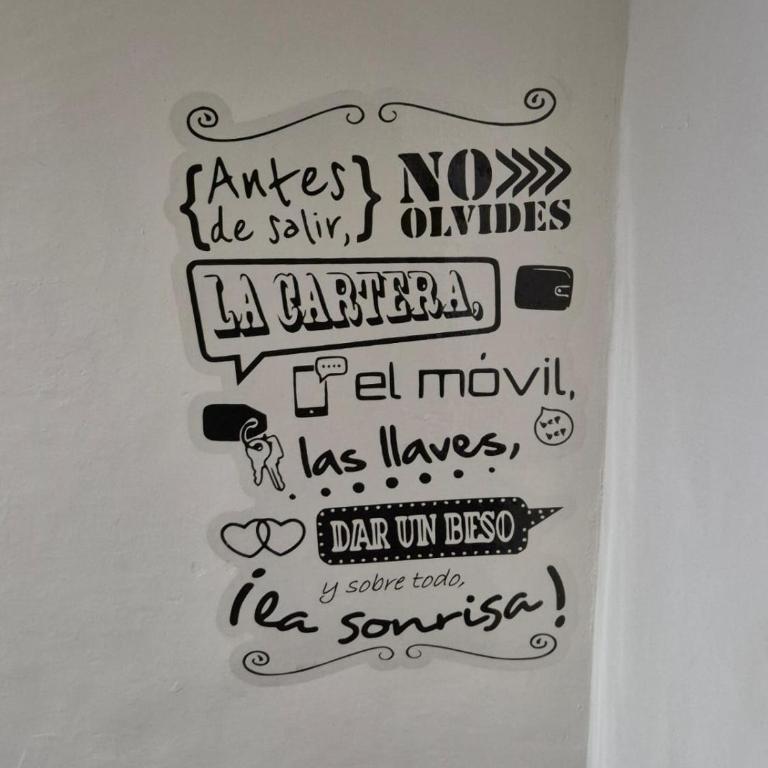 {Antes
de salir,}
NO >>>>
OLVIDES
LA CARTERA,
el móvil,
las llaves,
bep
bep
DAR UN BESO
y sobre todo,
¡la sonrisa!